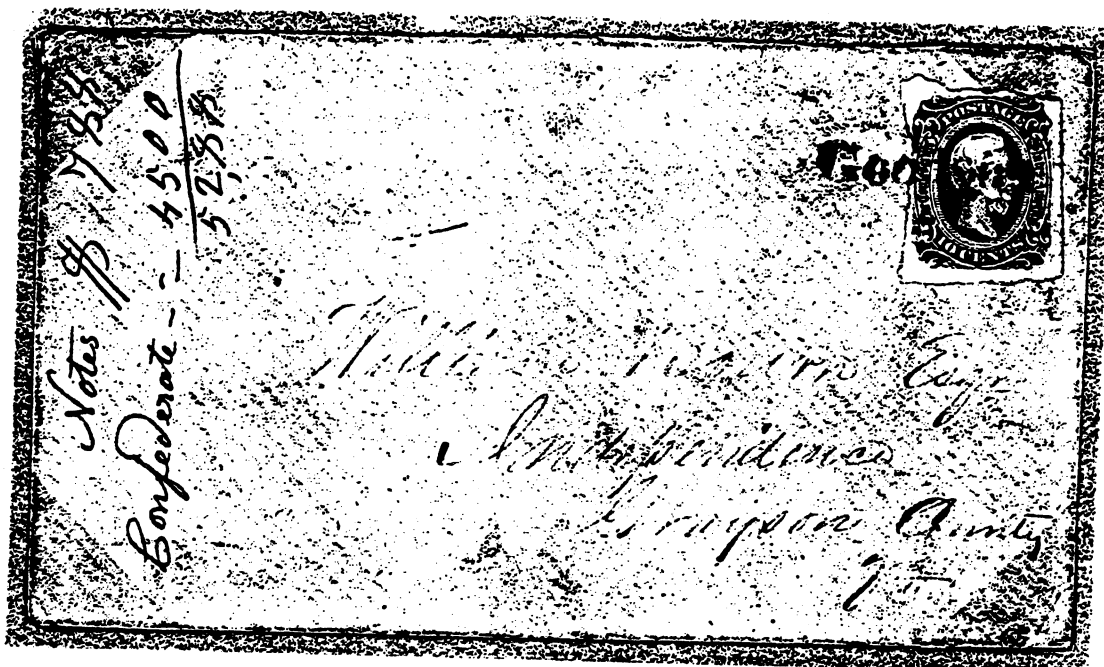 Notes $ 788
Confederate - - 4500
5,288
POSTAGE
CENTS
Esqr
Independence
Grayson County
Va